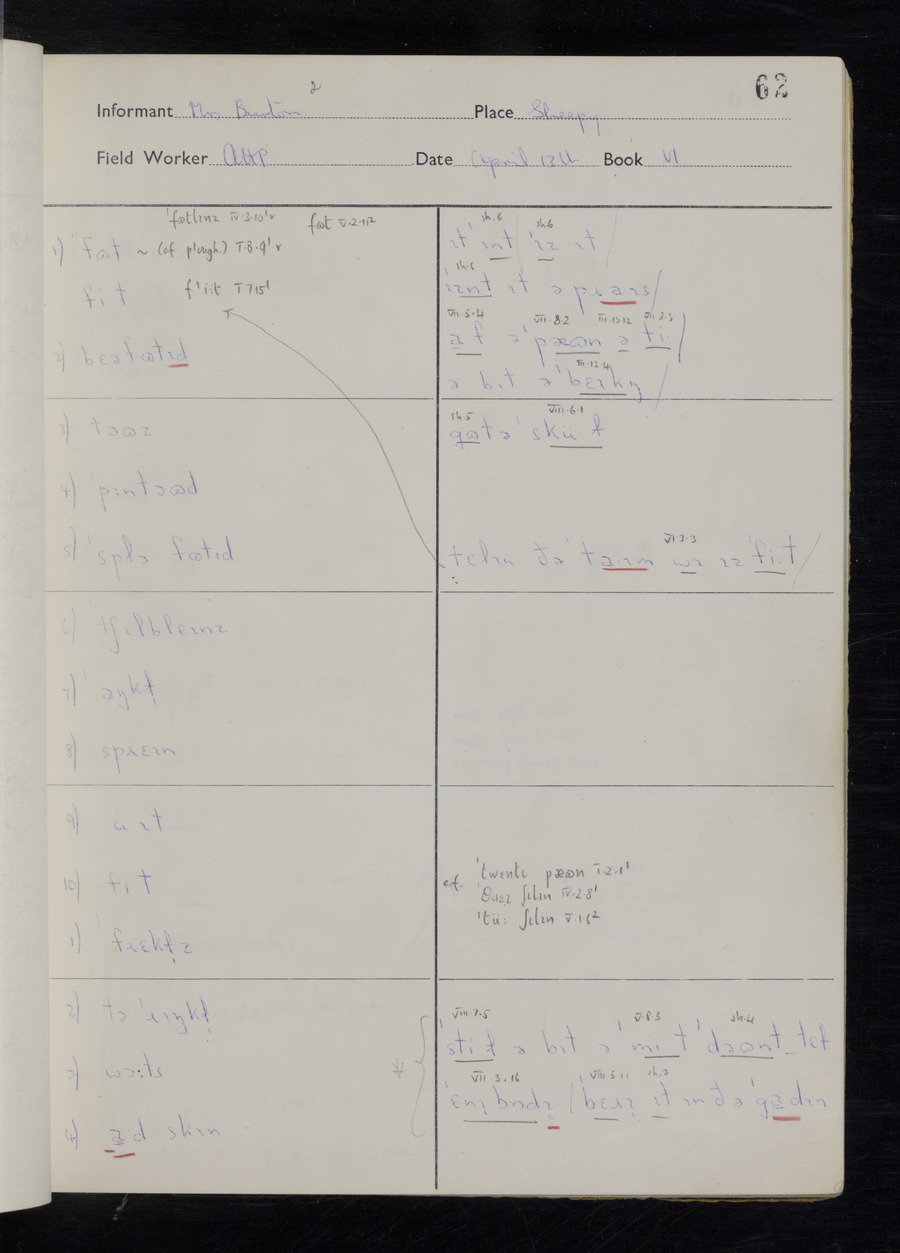 62
Informant Mrs Burton 2 Place Sheepy
Field Worker AHP Date April 13th Book VI
'fɷtlɪnz IV·3·10¹ fɷt V·2·11²
1) fɷt ~ (of plough) I·8·9¹
fi t f'i:t I 7 15¹
2) bɛəfɷtɪd
3) təɷz
4) 'pɪntəɷd
5) 'splə fɷtɪd
6) tʃɪlbleɪnz
7) aŋkɫ
8) spɹɛɪn
9) a ɪt
10) fi t
1) fɹɛkɫz
2) tə 'ɹɪŋkɫ
3) wə:ts
4) a:d skɪn
sh.6 sh.6
ɪt' ɪnt / ɪz ɪt /
sh.6
ɪznt ɪt ə pɹaɪs /
VII·5·4 VII·8·2 III·13·12 VII·3·3
əf ə 'pæɷn ə ti: /
III·12·4
ə bɪt ə 'bɛɪkŋ /
sh.5 VIII·6·1
gɷt ə 'skü: ɫ
VI·3·3
tɛlɪn ðə 'taɪm wɪ ɪz 'fi:t /
c.f. 'twɛntɪ pæɷn I·2·1¹
'θɹɛɪ ʃɪlɪn IV·2·8¹
'tü: ʃɪlɪn V·1·6²
VIII·7·5 V·8·3 sh.4
'sti:ɫ ə bɪt ə 'mi:t 'dəɷnt tɛɫ
VII·3·16 VIII·5·11 sh.3
'ɛnɪbɒdɪ / 'bɛɹɪ ɪt ɪn ðə 'ga:dɪn